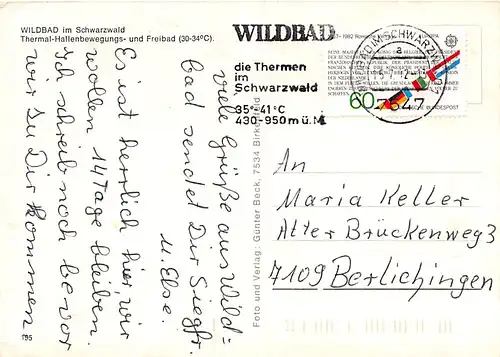 WILDBAD im Schwarzwald
Thermal-Hallenbewegungs- und Freibad (30-34°C).
Viele Grüße aus Wild=
bad sendet Dir Siegfr.
u. Else.
Es ist herrlich hier, wir
wollen 14 Tage bleiben.
Ich schreib noch bevor
wir zu Dir kommen
195
Foto und Verlag: Günter Beck, 7534 Birkenfeld
WILDBAD
die Thermen
im
Schwarzwald
35°-41°C
430-950 m ü. M
WILDBAD IM SCHWARZWALD
a
7547
60
DEUTSCHE BUNDESPOST
An
Maria Keller
Alter Brückenweg 3
7109 Berlichingen